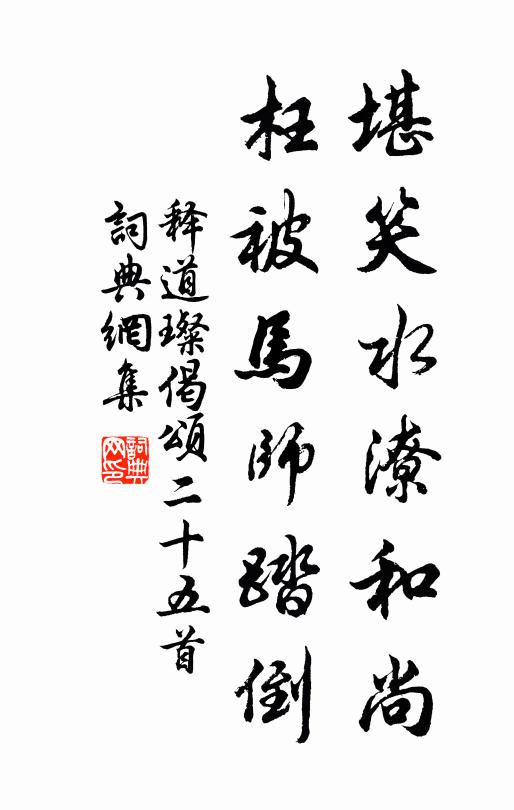 堪笑水潦和尚
枉被馬師踏倒
释道璨偈頌二十五首
詞典網集
詞典網印